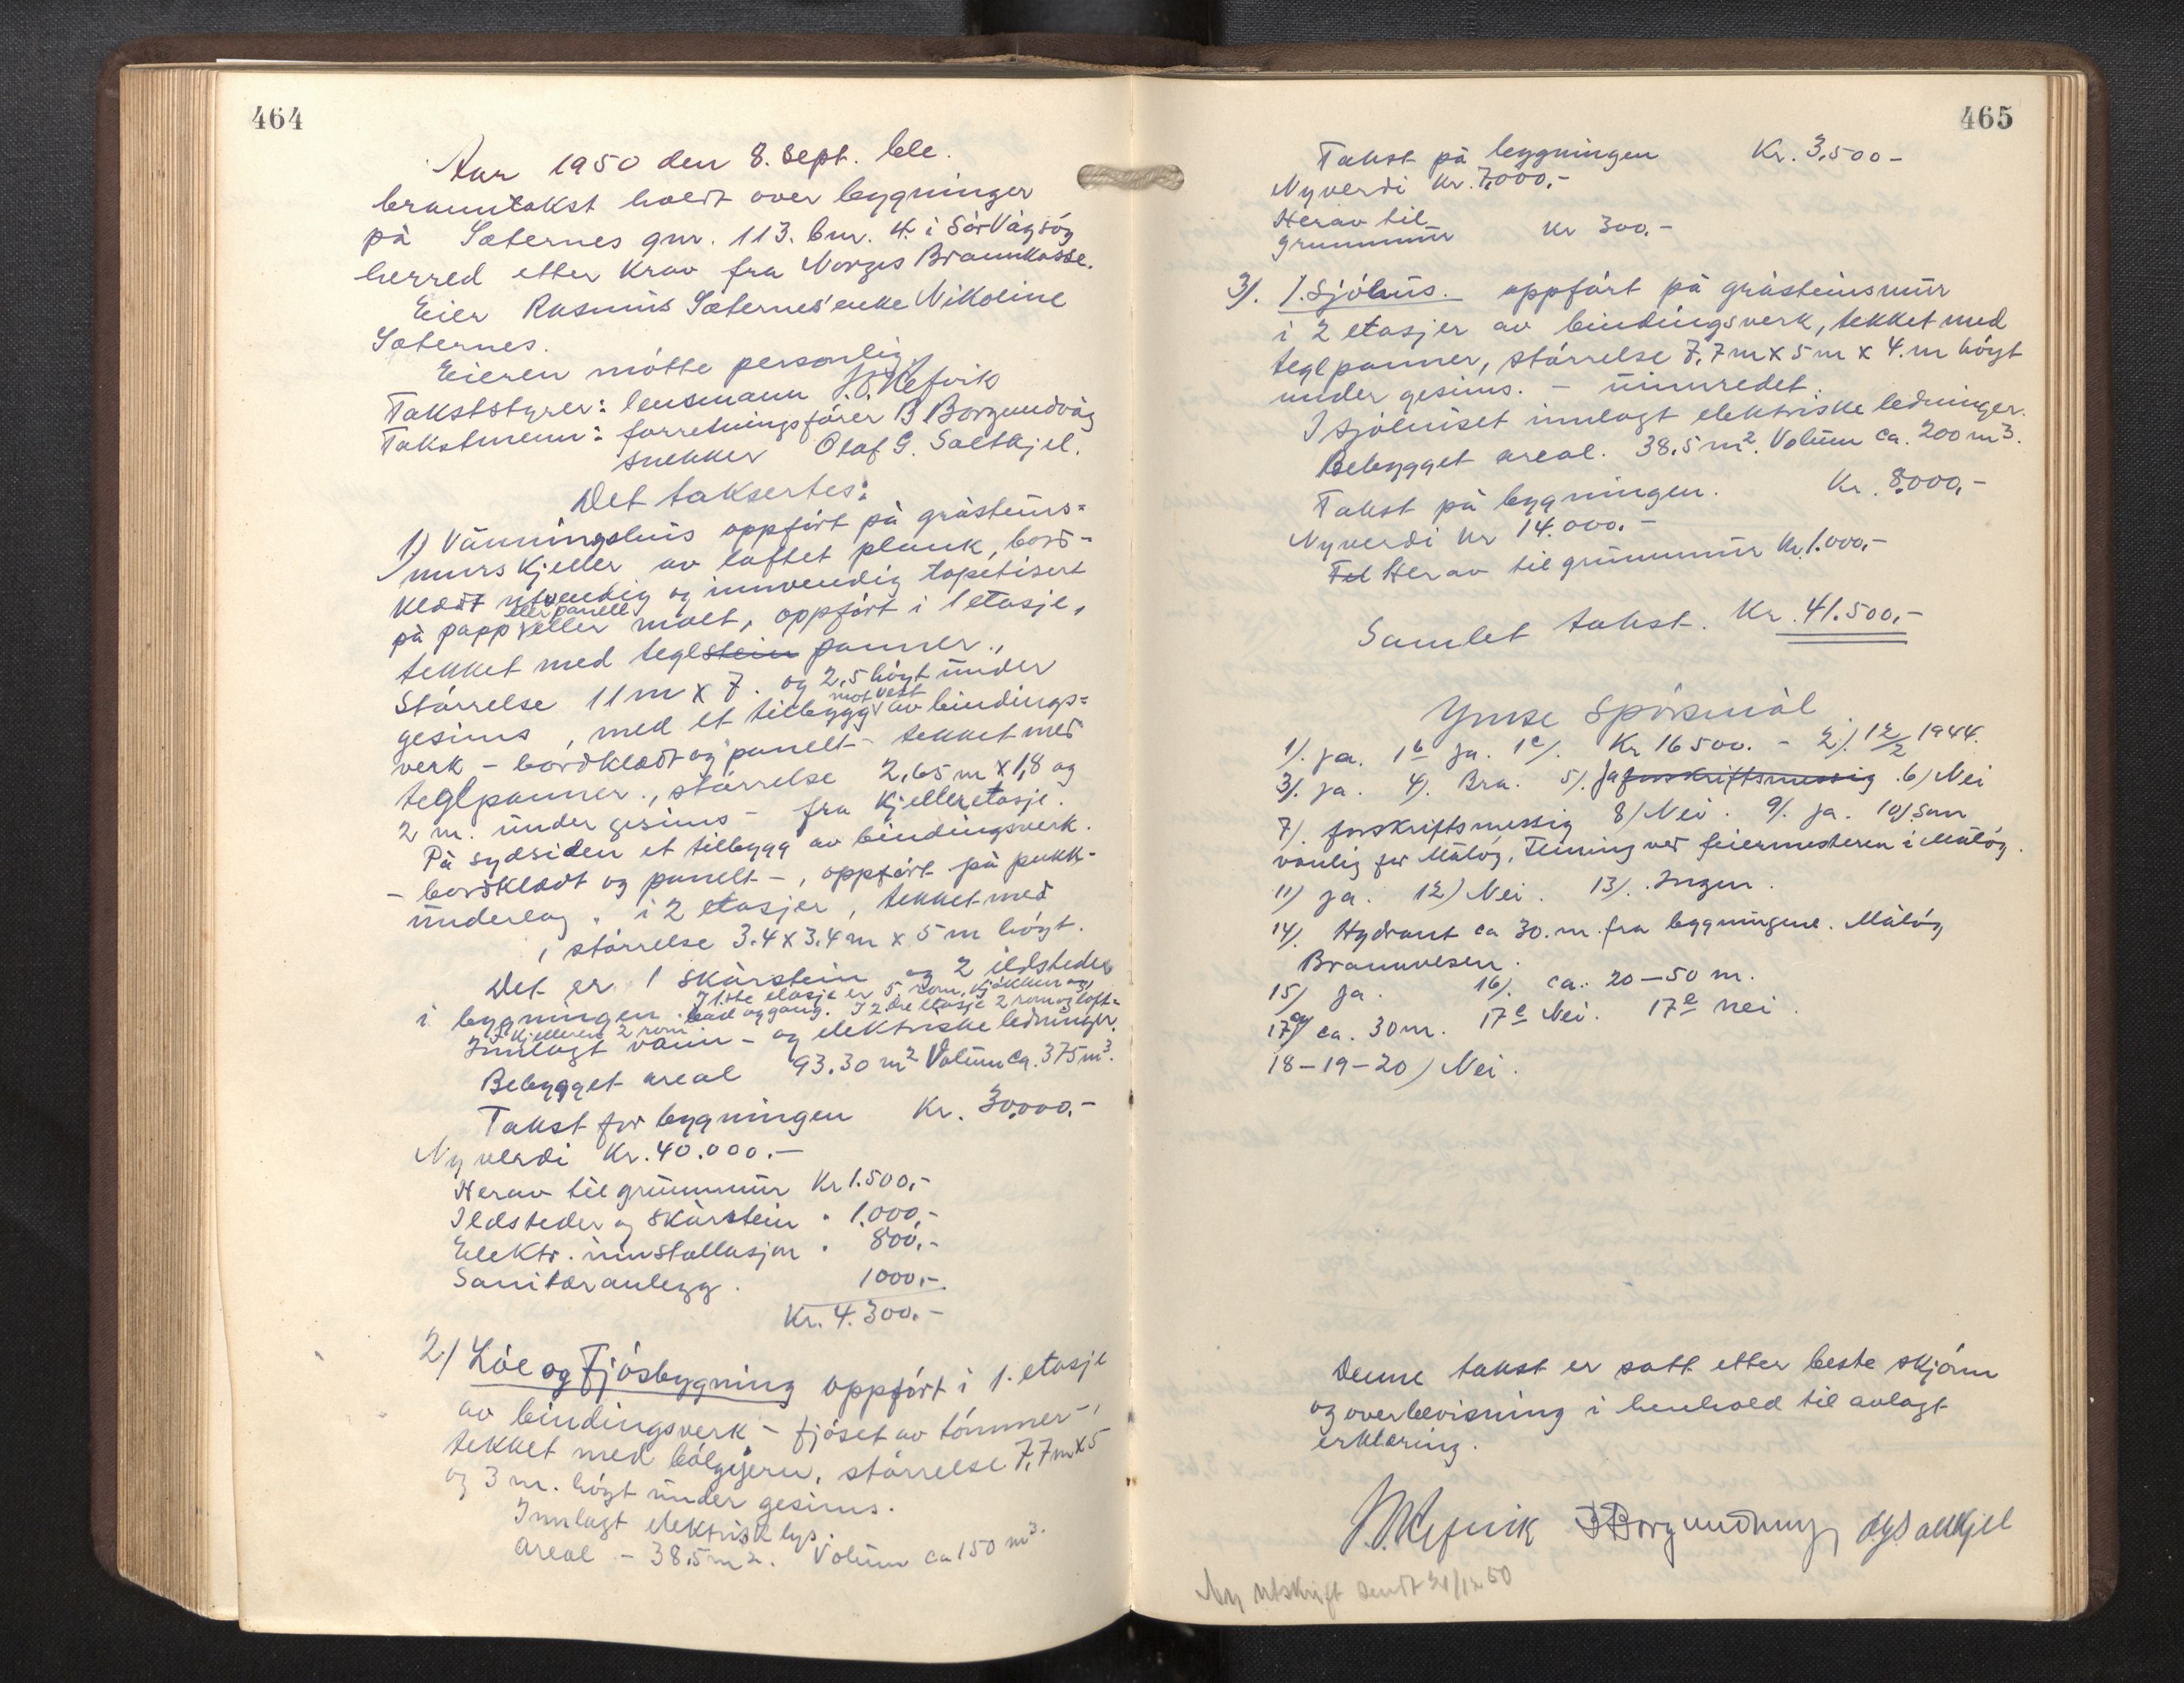 464
Aar 1950 den 8. Sept. ble
branntakst holdt over bygninger
på Sæternes gnr. 113. bnr. 4. i Sör Vågsöy
herred etter Krav fra Norges Brannkasse.
Eier Rasmus Sæternes' enke Nikoline
Sæternes.
Eieren mötte personlig.
Takststyrer: lensmann J. J. Refvik
Takstmenn: forretningsförer B Borgundvåg
snekker Olaf G. Saltkjel.
Det taksertes:
1) Vånningshus oppfört på gråsteins=
murs Kjeller av laftet plank, bord-
Klædt utvendig og innvendig tapetisert
på papp eller panell eller malt, oppfört i 1 etasje,
tekket med teglstein panner.,
Störrelse 11 m x 7. og 2,5 höyt under
gesims, med et tilbygg mot vest av bindings=
verk - bordklædt og panelt - tekket med
teglpanner., störrelse 2,65 m x 1,8 og
2 m. under gesims - fra Kjelleretasje.
På sydsiden et tilbygg av bindingsverk.
- bordklædt og panelt -, oppfört på pukk-
underlag. i 2 etasjer, tekket med
, störrelse 3.4 x 3.4 m x 5 m höyt.
Det er 1 skårstein og 2 ildsteder
i bygningen. I 1ste etasje er 5 rom, kjökken og
bad og gang. I 2dre etasje 2 rom og loft=
I kjelleren 2 rom
Innlagt vann - og elektriske ledninger.
Bebygget areal 93.30 m2 Volum ca. 375 m3.
Takst for bygningen Kr. 30,000.-
Nyverdi Kr. 40.000.-
Herav til grunnmur Kr 1.500,-
Ildsteder og skårstein " 1.000,-
Elektr. innstallasjon " 800,-
Sanitæranlegg. 1000,-
Kr. 4.300.-
2.) Löe og Fjösbygning oppfört i 1. etasje
av bindingsverk - fjöset av tömmer -,
tekket med bölgejern, störrelse 7,7 m x 5
og 3 m. höyt under gesims.
Innlagt elektrisk lys.
areal - 38,5 m2. Volum ca 150 m3.
465
Takst på bygningen Kr. 3,500-
Nyverdi Kr. 7,000,-
Herav til
grunnmur Kr 300.-
3). 1. Sjöhus. oppfört på gråsteinsmur
i 2 etasjer av bindingsverk, tekket med
teglpanner, störrelse 7,7 m x 5 m x 4. m höyt
under gesims. - uinnredet.
I sjöhuset innlagt elektriske ledninger.
Bebygget areal. 38.5 m2. Volum ca. 200 m3.
Takst på bygningen. Kr. 8,000,-
Nyverdi Kr 14.000.-
Tel Herav til grunnmur Kr. 1.000,-
Samlet takst. Kr. 41.500,-
Ymse Spörsmål
1). ja. 1b ja. 1c). Kr 16500. - 2.) 12/2 1944.
3). ja. 4). Bra. 5). ja forskriftsmessig. 6) Nei
7). forskriftsmessig 8) Nei. 9). ja. 10) som
vanlig for Målöy, Feining ved feiermesteren i Målöy.
11) ja. 12) Nei. 13). Ingen.
14). Hydrant ca 30. m. fra bygningene. Målöy
Brannvesen.
15) ja. 16). ca. 20-50 m.
17a) ca. 30 m. 17c Nei. 17e nei.
18-19-20) Nei.
Denne takst er satt etter beste skjönn
og overbevisning i henhold til avlagt
erklæring.
J. J. Refvik B Borgundvåg O G Saltkjel
Ny utskrift sendt 21/12 50